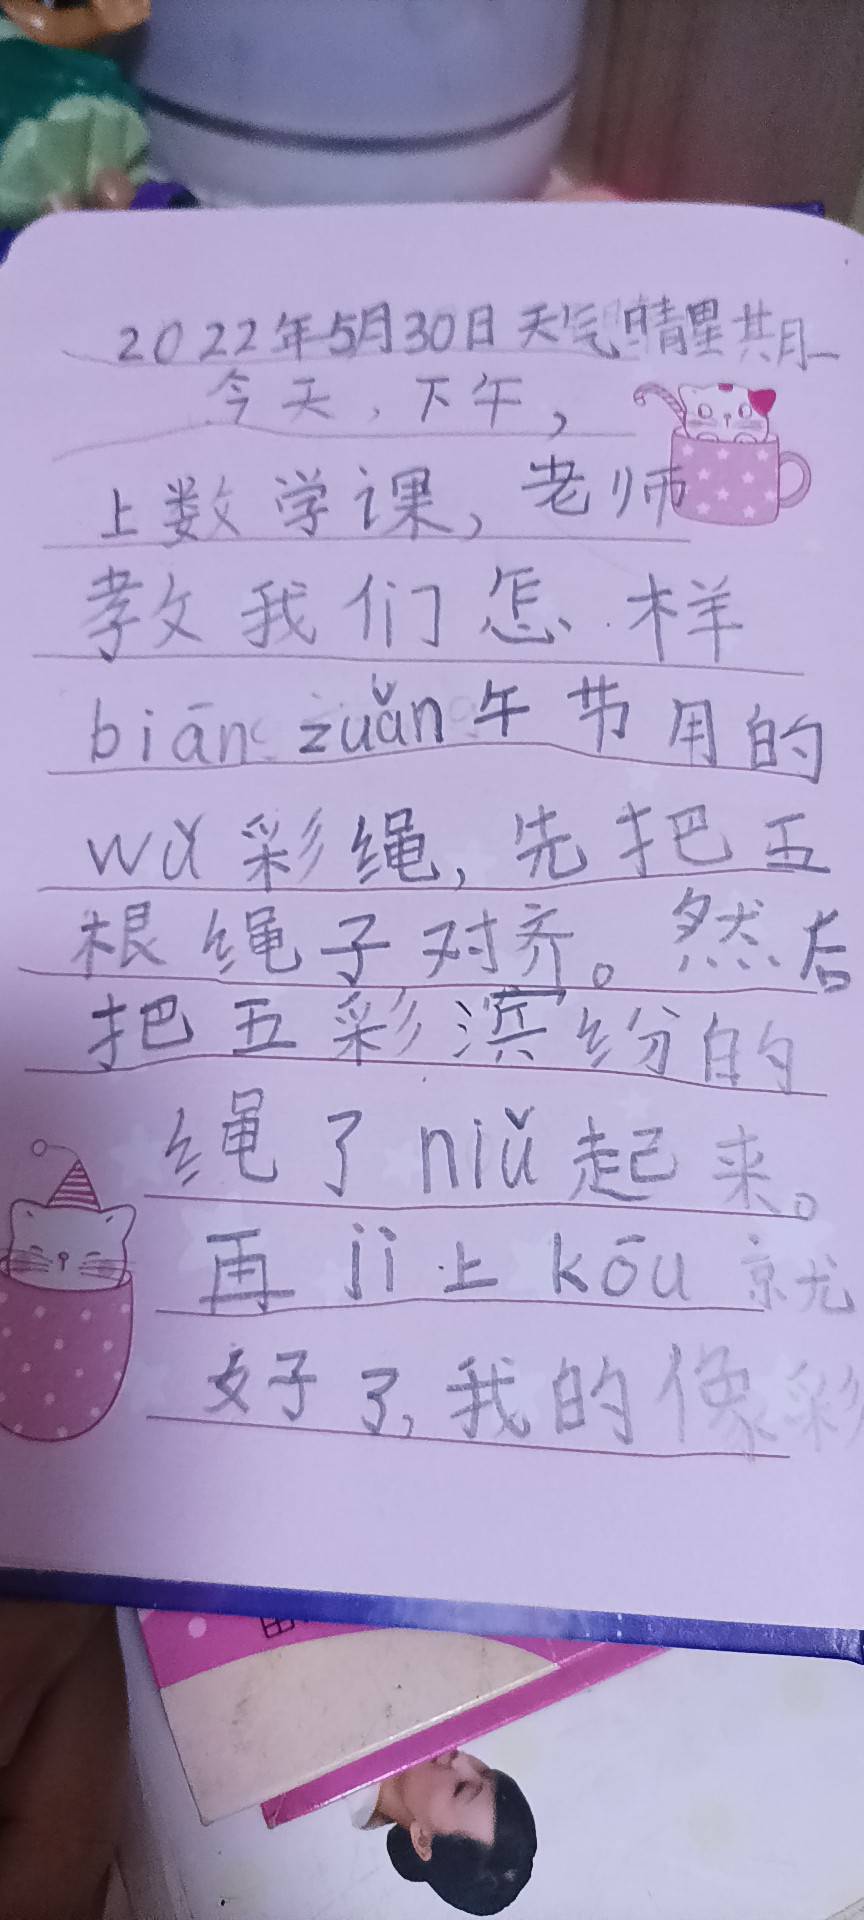 2022年5月30日天气晴星其月一
今天，下午，
上数学课，老师
教我们怎样
biān zuǎn午节用的
wǔ彩绳，先把五
根绳子对齐。然后
把五彩滨纷的
绳了niǔ起来。
再jì上kōu就
好了，我的像彩